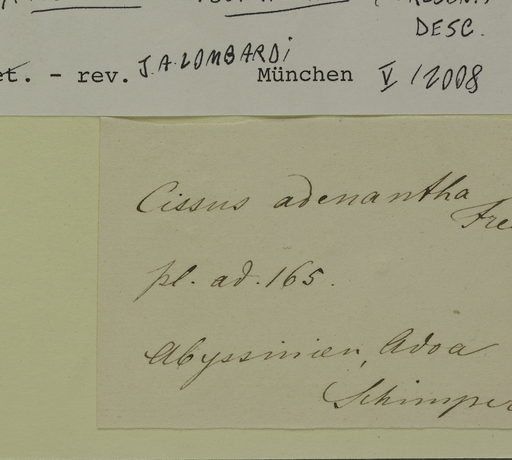 DESC.
et. - rev. J.A. LOMBARDI München V/2008
Cissus adenantha
Fre
pl. ad. 165.
Abyssinien, Adoa
Schimper